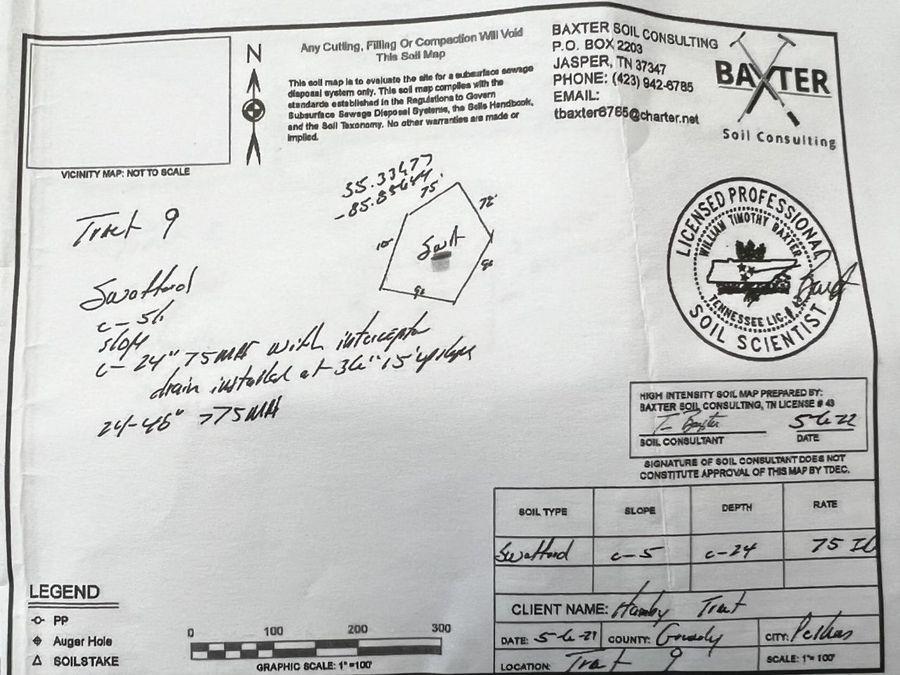 N
Any Cutting, Filling Or Compaction Will Void
This Soil Map
This soil map is to evaluate the site for a subsurface sewage
disposal system only. This soil map complies with the
standards established in the Regulations to Govern
Subsurface Sewage Disposal Systems, the Soils Handbook,
and the Soil Taxonomy. No other warranties are made or
implied.
BAXTER SOIL CONSULTING
P.O. BOX 2203
JASPER, TN 37347
PHONE: (423) 942-6785
EMAIL:
tbaxter6785@charter.net
BAXTER
Soil Consulting
VICINITY MAP: NOT TO SCALE
Tract 9
35.33477
75'
LICENSED PROFESSIONAL
WILLIAM TIMOTHY BAXTER
TENNESSEE LIC.
SOIL SCIENTIST
Swafford
slope
24" 75 with interceptor
drain installed at 15'
24-48" >75
HIGH INTENSITY SOIL MAP PREPARED BY:
BAXTER SOIL CONSULTING, TN LICENSE # 43
SOIL CONSULTANT
DATE
SIGNATURE OF SOIL CONSULTANT DOES NOT
CONSTITUTE APPROVAL OF THIS MAP BY TDEC.
SOIL TYPE SLOPE DEPTH RATE
Swafford 0-5 0-24 75
LEGEND
PP
Auger Hole
SOILSTAKE
0 100 200 300
GRAPHIC SCALE: 1"=100'
CLIENT NAME: Tract
DATE: 5-6-21 COUNTY: Grundy CITY: Pelham
LOCATION: Tract 9 SCALE: 1"= 100'